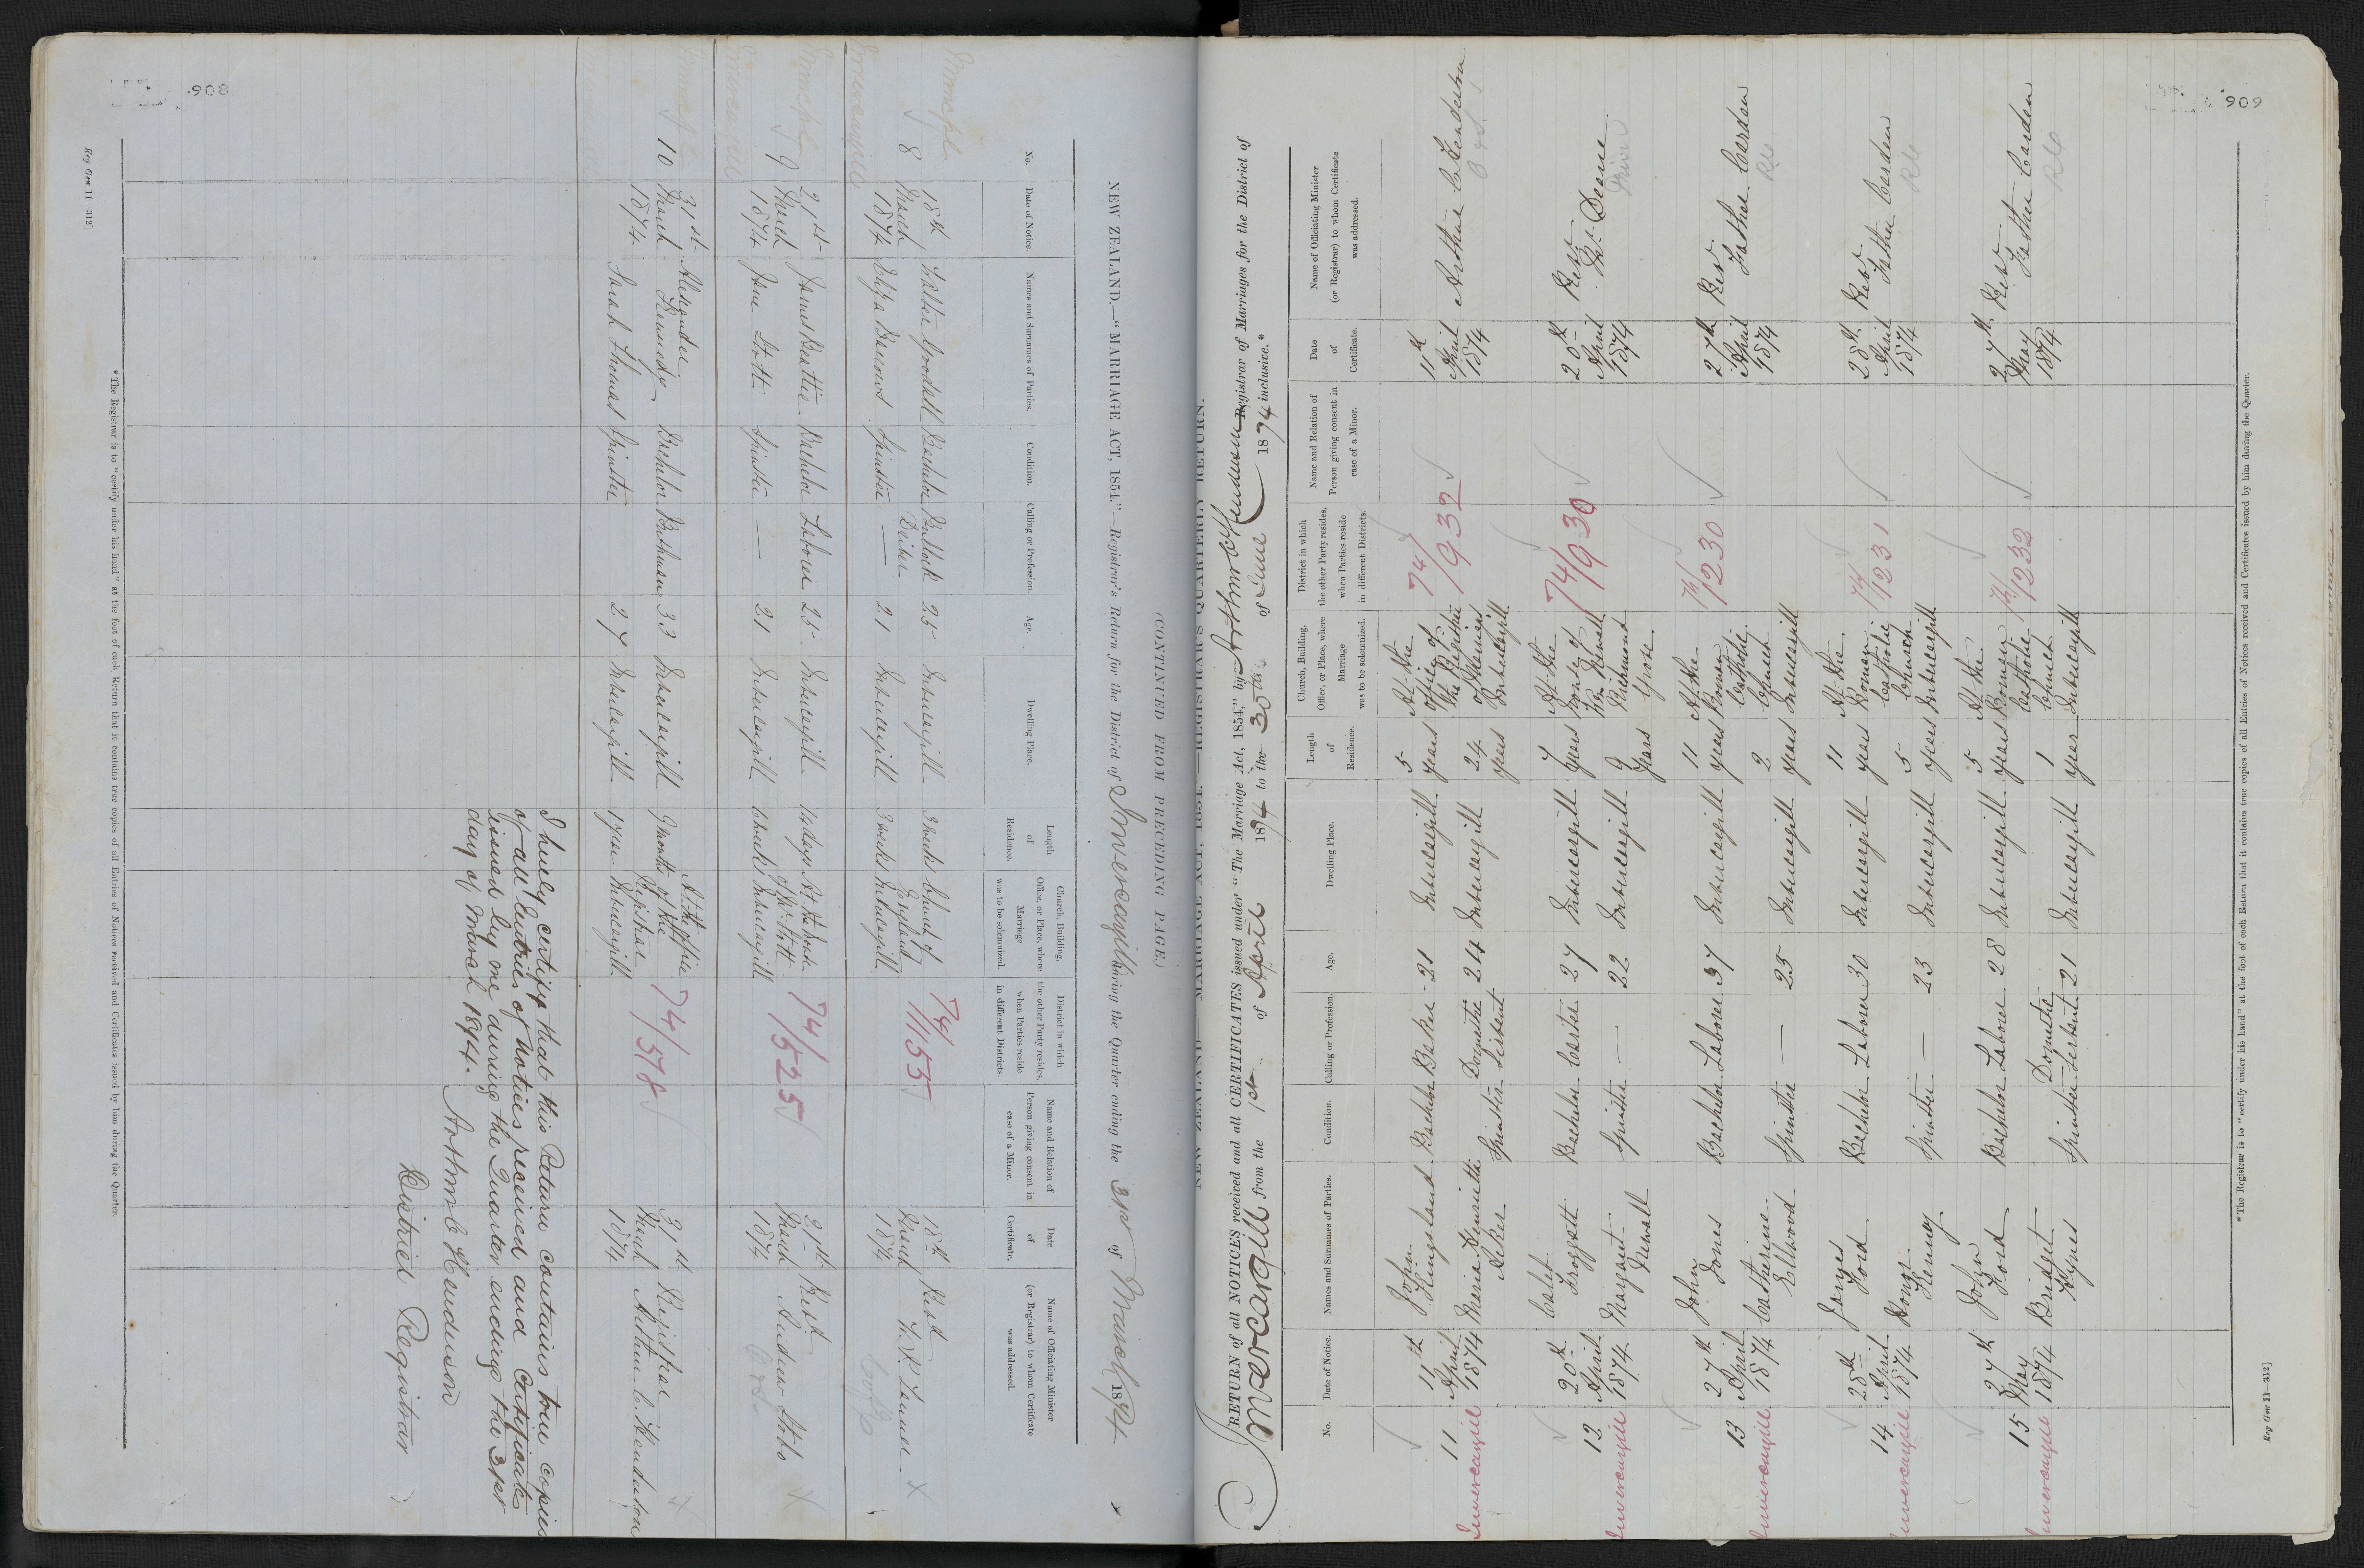 908
(CONTINUED FROM PRECEDING PAGE.)
NEW ZEALAND.—"MARRIAGE ACT, 1854."—Registrar's Return for the District of Invercargill during the Quarter ending the 31st of March 1874
No.
Date of Notice.
Names and Surnames of Parties.
Condition.
Calling or Profession.
Age.
Dwelling Place.
Length of Residence.
Church, Building, Office, or Place, where Marriage was to be solemnized.
District in which the other Party resides, when Parties reside in different Districts.
Name and Relation of Person giving consent in case of a Minor.
Date of Certificate.
Name of Officiating Minister (or Registrar) to whom Certificate was addressed.
8
18th March 1874
Walter Goodall Bachelor Bullock Driver 25 Invercargill 3 weeks
Eliza Barrows Spinster — 21 Invercargill 3 weeks
Church of England Invercargill
74/1155
18th March 1874
Revd W. P. Tanner
9
21st March 1874
James Beattie Bachelor Laborer 25 Invercargill 14 days
Jane Stott Spinster — 21 Invercargill
At the house of Mr Stott Invercargill
74/525
21st March 1874
Revd Andrew Stobo
10
31st March 1874
Alexander Kennedy Bachelor 33 Invercargill 9 months
Sarah Thomas Spinster 27 Invercargill 1 year
At the office of the Registrar Invercargill
74/578
31st March 1874
Registrar Arthur C. Henderson
I hereby certify that this Return contains true copies
of all Entries of notices received and Certificates
issued by me during the Quarter ending the 31st
day of March 1874.
Arthur C Henderson
District Registrar
*The Registrar is to "certify under his hand" at the foot of each Return that it contains true copies of all Entries of Notices received and Certificates issued by him during the Quarter.
Reg Gen 11—312]
909
NEW ZEALAND.—"MARRIAGE ACT, 1854."—REGISTRAR'S QUARTERLY RETURN.
RETURN of all NOTICES received and all CERTIFICATES issued under "The Marriage Act, 1854," by Arthur C Henderson Registrar of Marriages for the District of
Invercargill from the 1st of April 1874 to the 30th of June 1874 inclusive.*
No.
Date of Notice.
Names and Surnames of Parties.
Condition.
Calling or Profession.
Age.
Dwelling Place.
Length of Residence.
Church, Building, Office, or Place, where Marriage was to be solemnized.
District in which the other Party resides, when Parties reside in different Districts.
Name and Relation of Person giving consent in case of a Minor.
Date of Certificate.
Name of Officiating Minister (or Registrar) to whom Certificate was addressed.
11
Invercargill
11th April 1874
John Kingsland Bachelor Baker 21 Invercargill 5 years
Maria Henrietta Aeker Spinster Domestic Servant 24 Invercargill 24 years
At the office of the Registrar of Marriages Invercargill
74/932
11th April 1874
Arthur C Henderson
12
Invercargill
20th April 1874
Calet Froggatt Bachelor Carter 27 Invercargill 7 years
Margaret Newall Spinster — 22 Invercargill 9 years
At the house of Mr Newall Richmond Grove.
74/930
20th April 1874
Revd Mr Deane
13
Invercargill
27th April 1874
John Jones Bachelor Laborer 37 Invercargill 11 years
Catherine Ellwood Spinster — 25 Invercargill 2 years
At the Roman Catholic Church Invercargill
74/1230
27th April 1874
Revd Father Cordan
RC
14
Invercargill
28th April 1874
James Ford Bachelor Laborer 30 Invercargill 11 years
Honor Kenny Spinster — 23 Invercargill 5 years
At the Roman Catholic Church Invercargill
74/1231
28th April 1874
Revd Father Cordan
RC
15
Invercargill
27th May 1874
John Ford Bachelor Laborer 28 Invercargill 5 years
Bridget Hynes Spinster Domestic Servant 21 Invercargill 1 year
At the Roman Catholic Church Invercargill
74/1232
27th May 1874
Revd Father Cordan
RC
*The Registrar is to "certify under his hand" at the foot of each Return that it contains true copies of all Entries of Notices received and Certificates issued by him during the Quarter.
Reg Gen 11—312]